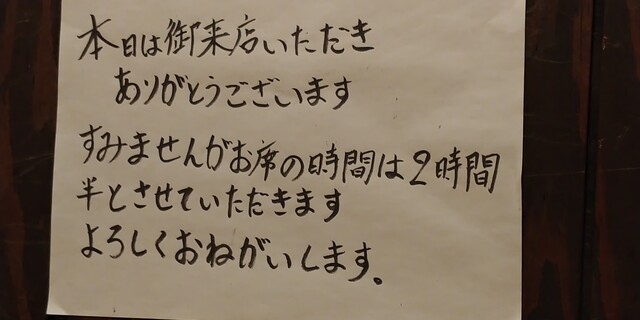 本日は御来店いただき
ありがとうございます
すみませんがお席の時間は2時間
半とさせていただきます
よろしくおねがいします。